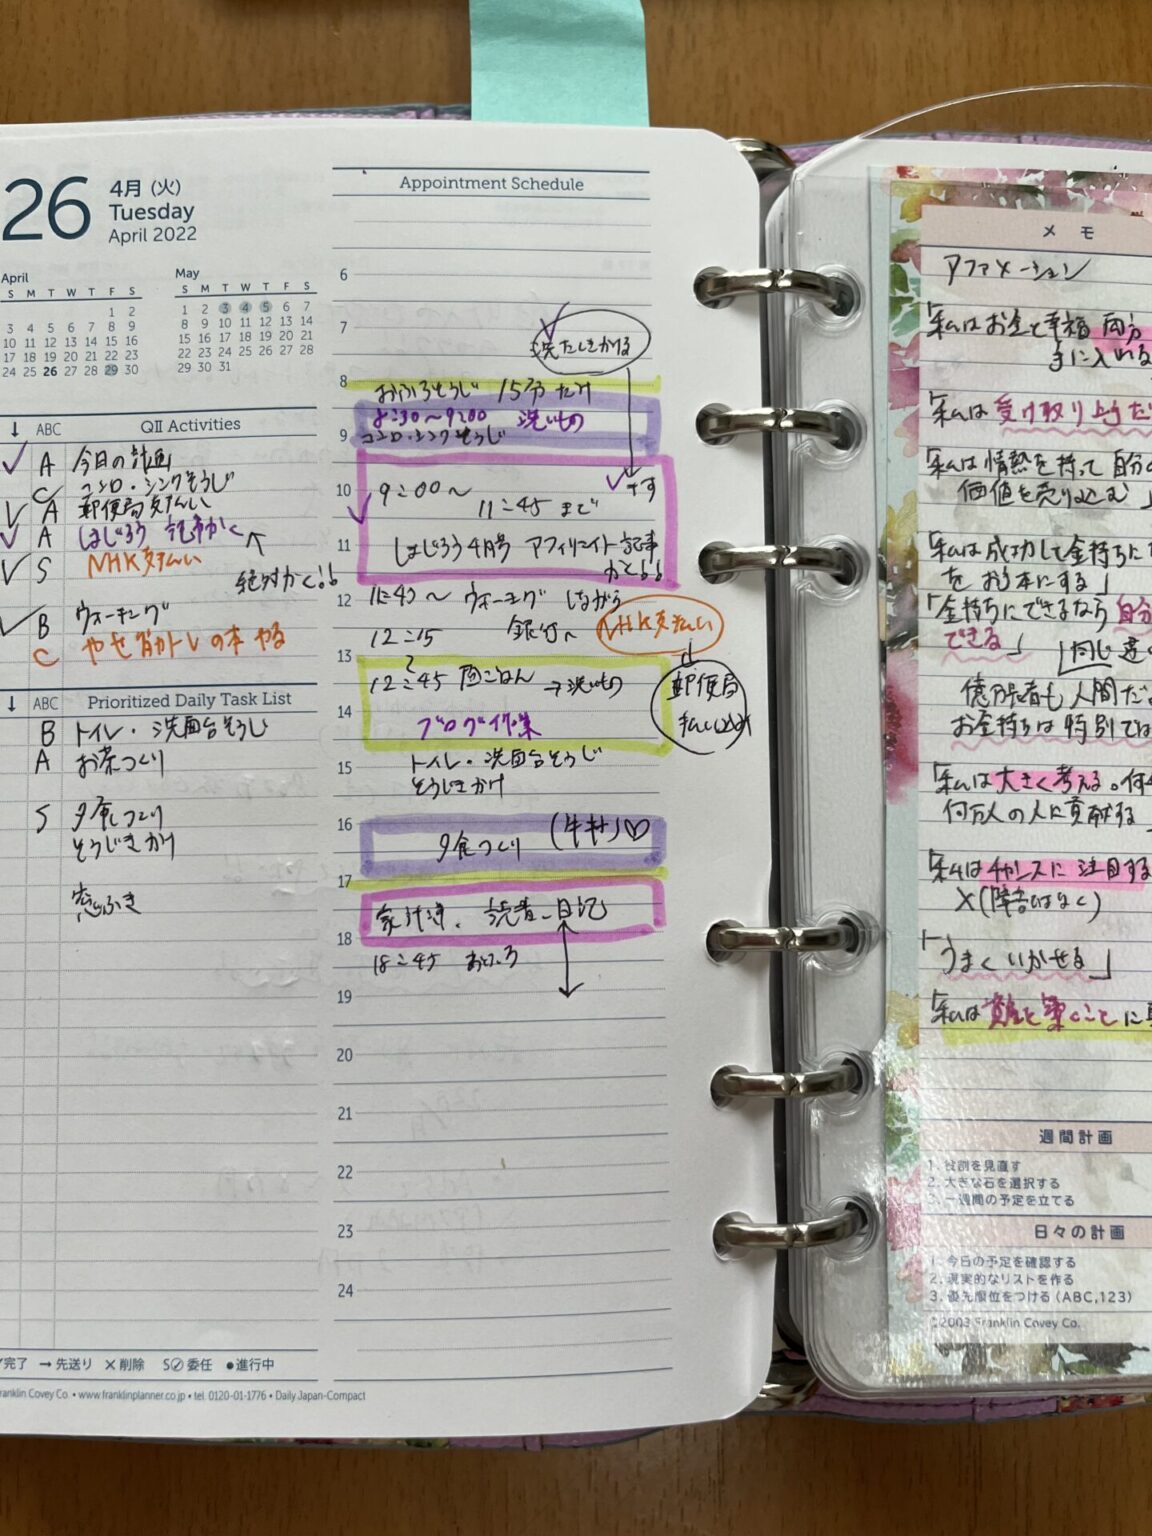 26
4月 (火)
Tuesday
April 2022
April
S M T W T F S
1 2
3 4 5 6 7 8 9
10 11 12 13 14 15 16
17 18 19 20 21 22 23
24 25 26 27 28 29 30
May
S M T W T F S
1 2 3 4 5 6 7
8 9 10 11 12 13 14
15 16 17 18 19 20 21
22 23 24 25 26 27 28
29 30 31
↓ ABC QII Activities
✓ A 今日の計画
C コンロ・シンクそうじ
✓ A 郵便局支払い
✓ A はじろう 記事かく
絶対かく!!
✓ S NHK支払い
✓ B ウォーキング
C やせ筋トレの本 やる
↓ ABC Prioritized Daily Task List
B トイレ・洗面台そうじ
A お茶つくり
S 夕食つくり
そうじきかけ
窓ふき
✓完了 → 先送り ✕ 削除 S 委任 ●進行中
Franklin Covey Co. • www.franklinplanner.co.jp • tel. 0120-01-1776 • Daily Japan-Compact
Appointment Schedule
6
7
洗たくきかける
8
おふろそうじ 15分だけ
8:30～9:00 洗いもの
9
コンロ・シンクそうじ
10
9:00～
干す
11:45 まで
11
しまじろう4月号 アフィリエイト記事
かく!!
12
11:45～ ウォーキング しながら
12:15 銀行へ NHK支払い
13
12:45 昼ごはん →洗いもの
郵便局
払い込み
14
ブログ作業
トイレ・洗面台そうじ
15
そうじきかけ
16
夕食つくり
17
家計簿、読書、日記
18
18:45 おふろ
19
20
21
22
23
24
メモ
アファメーション
「私はお金と幸福 両方
手に入れる
「私は 受け取り上手だ
「私は情熱を持って 自分の
価値を売り込む」
「私は成功して金持ちに
をお手本にする」
「金持ちにできるなら 自分
できる」
同じ
億万長者も人間だ
お金持ちは特別では
「私は大きく考える。何
何万人の人に貢献する
「私はチャンスに 注目する
X(障害ではなく)
「うまくいかせる」
「私は資産を築くことに
週間計画
1. 役割を見直す
2. 大きな石を選択する
3. 一週間の予定を立てる
日々の計画
1. 今日の予定を確認する
2. 現実的なリストを作る
3. 優先順位をつける (ABC,123)
©2003 Franklin Covey Co.